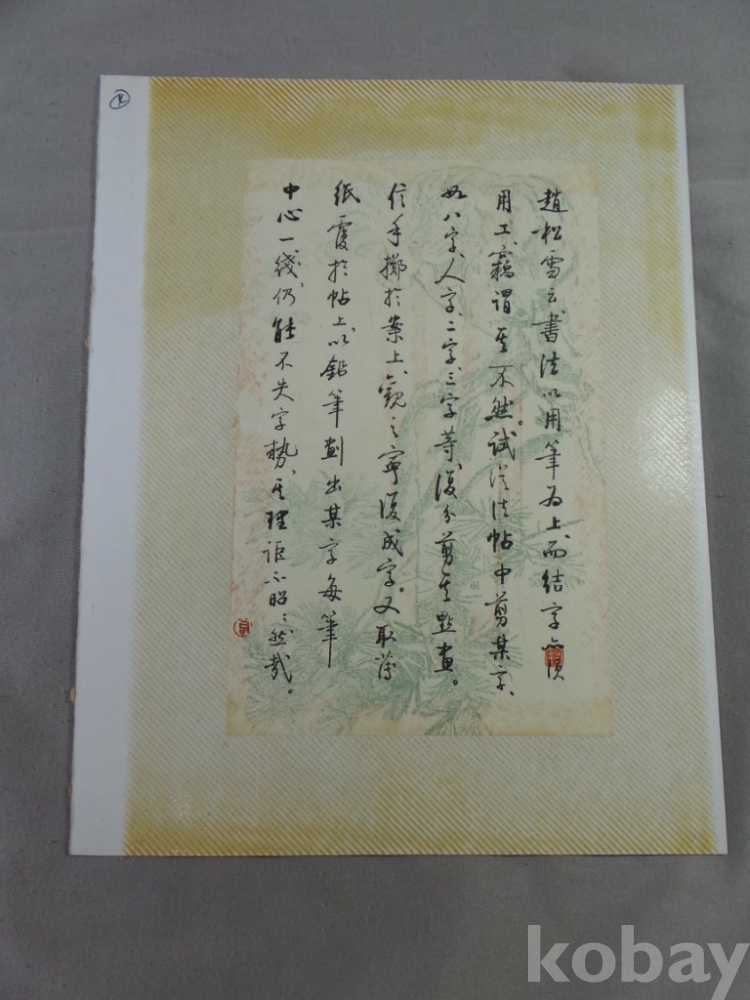 趙松雪云書法以用筆為上、而結字亦須
用工、竊謂其不然。試從法帖中剪某字、
如八字、人字、二字、三字等、復分剪其點畫。
信手擲於案上、觀之寧復成字。又取薄
紙覆於帖上、以鉛筆劃出某字每筆
中心一綫、仍能不失字勢、其理詎不昭々然哉。
kobay